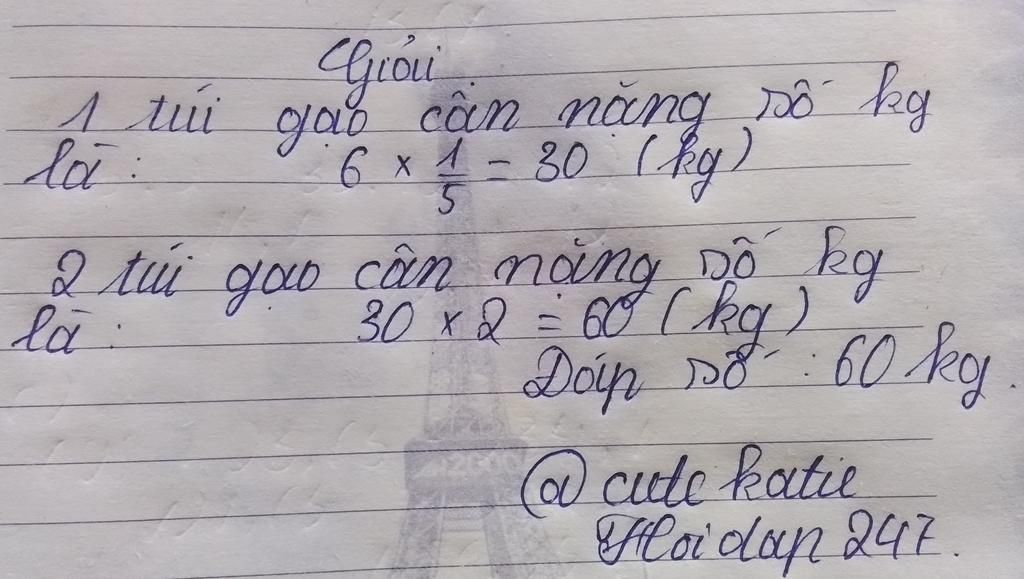 Giải
1 túi gạo cân nặng số kg
là : 6 × 1/5 = 30 (kg)
2 túi gạo cân nặng số kg
là : 30 × 2 = 60 (kg)
Đáp số : 60 kg.
@ cute katie
Hoidap 247.